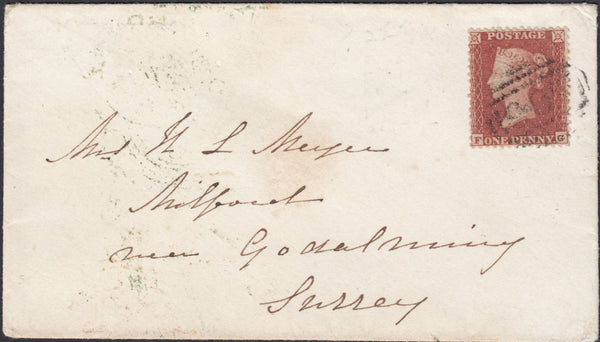 POSTAGE
F ONE PENNY G
Mrs H L Meyer
Milford
near Godalming
Surrey